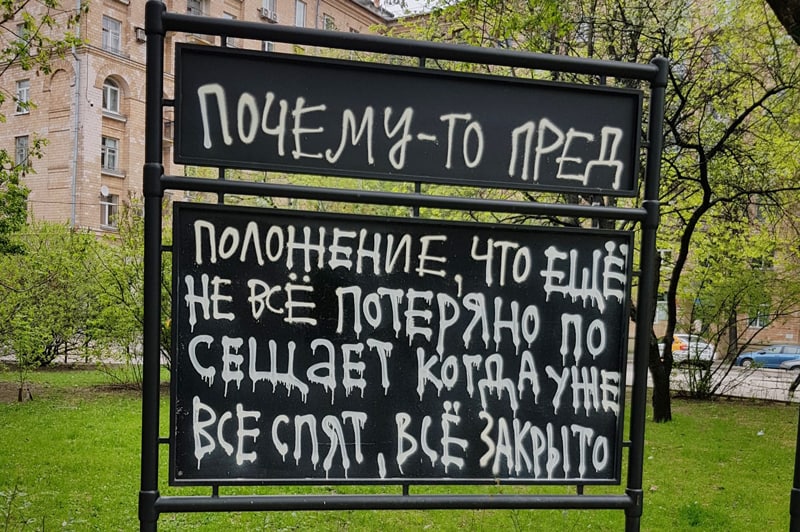 ПОЧЕМУ-ТО ПРЕД
ПОЛОЖЕНИЕ, ЧТО ЕЩЁ
НЕ ВСЁ ПОТЕРЯНО ПО
СЕЩАЕТ КОГДА УЖЕ
ВСЕ СПЯТ, ВСЁ ЗАКРЫТО